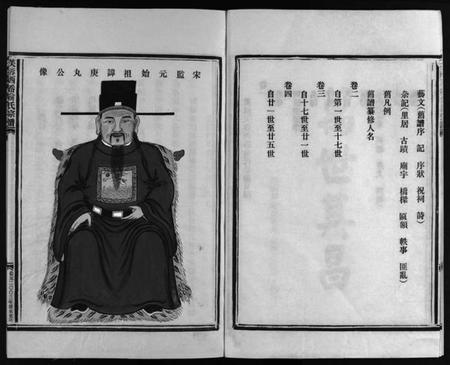 藝文（舊譜序 記 序狀 祝祠 詩）
余記（里居 古蹟 廟宇 橋樑 匾額 軼事 匪亂）
舊凡例
舊譜纂修人名
卷二
自第一世至十七世
卷三
自十七世至廿一世
卷四
自廿一世至廿五世
宋監元始祖諱庚丸公像